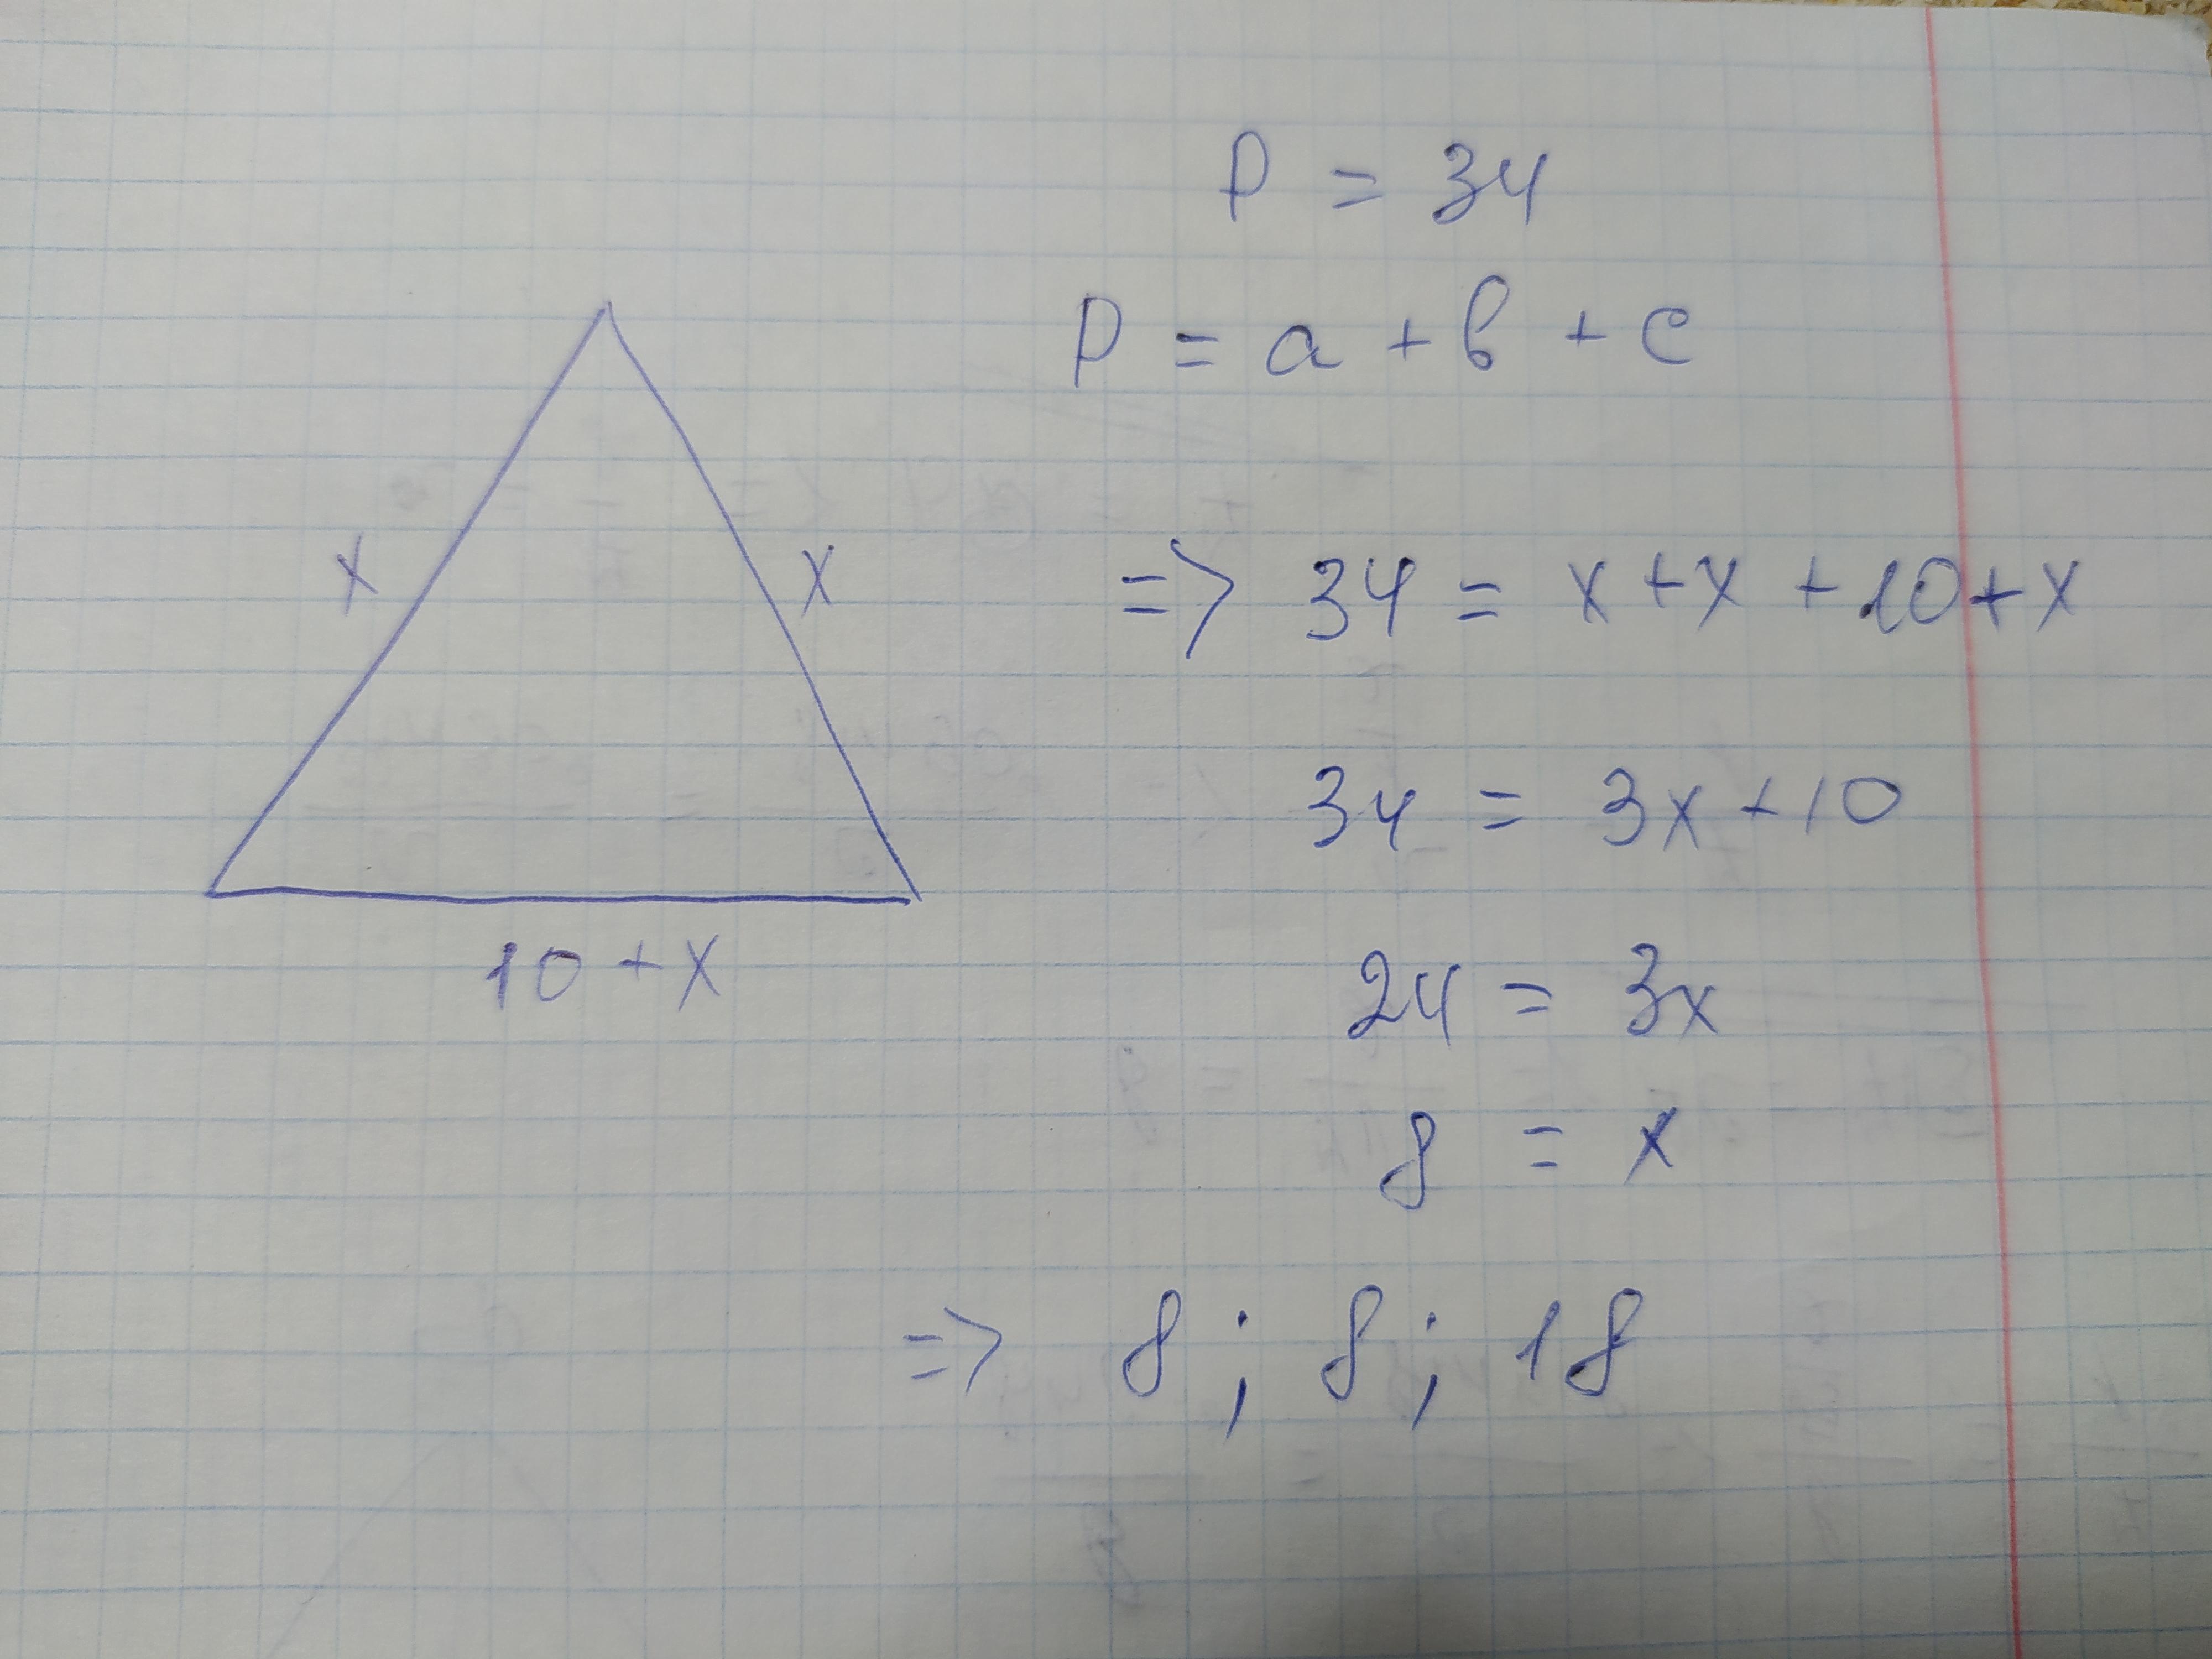 P = 34
P = a + b + c
x
x
=> 34 = x + x + 10 + x
34 = 3x + 10
10 + x
24 = 3x
8 = x
=> 8 ; 8 ; 18